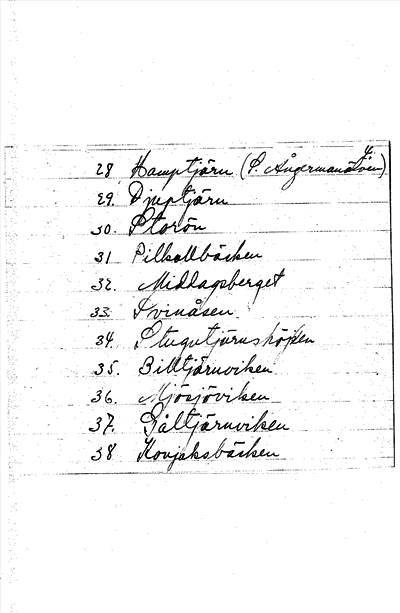 4.
28 Kamptjärn (S. Ångermanälven)
29. Djuptjärn
30. Storön
31 Pilkallbäcken
32. Midlagsberget
33 Svinåsen.
34. Stugutjärnshöjden
35. Billtjärnviken
36. Mjösjöviken
37. Gåltjärnviken
38 Konjaksbäcken